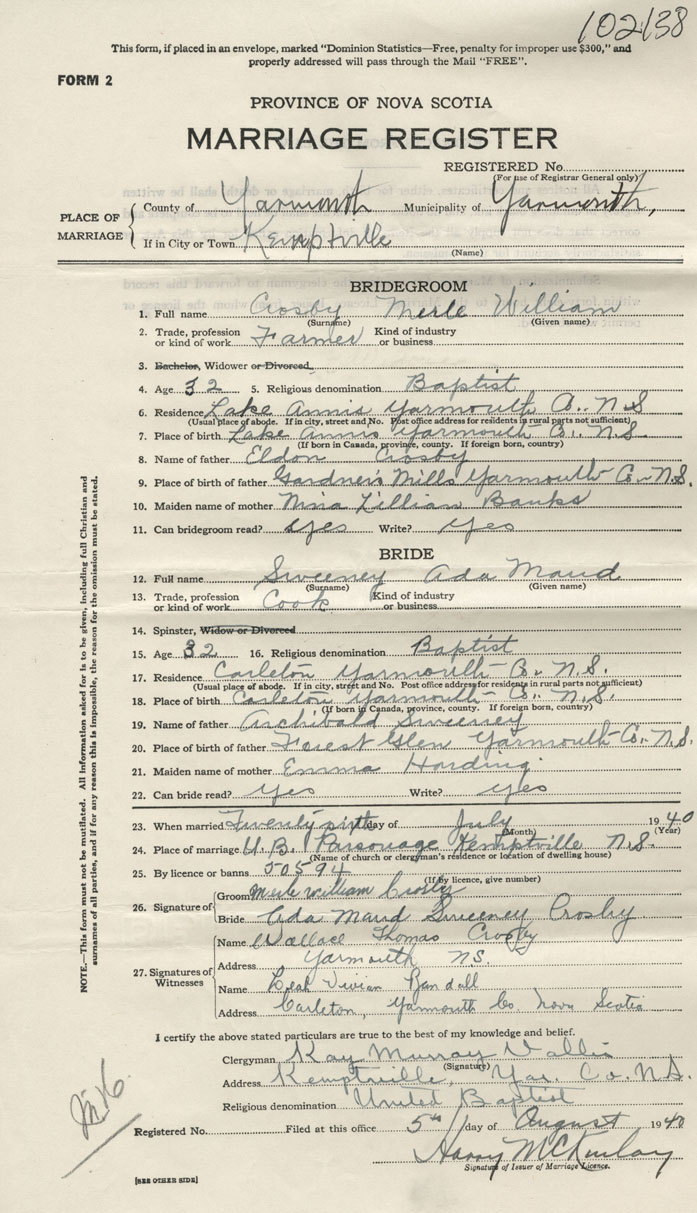 102138
This form, if placed in an envelope, marked "Dominion Statistics—Free, penalty for improper use $300," and
properly addressed will pass through the Mail "FREE".
FORM 2
PROVINCE OF NOVA SCOTIA
MARRIAGE REGISTER
REGISTERED No
(For use of Registrar General only)
PLACE OF MARRIAGE
County of Yarmouth Municipality of Yarmouth,
If in City or Town Kemptville
(Name)
BRIDEGROOM
1. Full name Crosby Merle William
(Surname) (Given name)
2. Trade, profession or kind of work Farmer Kind of industry or business
3. Bachelor, Widower or Divorced
4. Age 32 5. Religious denomination Baptist
6. Residence Lake Annis Yarmouth Co. N.S
(Usual place of abode. If in city, street and No. Post office address for residents in rural parts not sufficient)
7. Place of birth Lake Annis Yarmouth Co. N.S.
(If born in Canada, province, county. If foreign born, country)
8. Name of father Eldon Crosby
9. Place of birth of father Gardner's Mills Yarmouth Co N.S.
10. Maiden name of mother Nina Lillian Banks
11. Can bridegroom read? Yes Write? Yes
BRIDE
12. Full name Sweeney Ada Maud
(Surname) (Given name)
13. Trade, profession or kind of work Cook Kind of industry or business
14. Spinster, Widow or Divorced
15. Age 32 16. Religious denomination Baptist
17. Residence Carleton Yarmouth Co. N.S.
(Usual place of abode. If in city, street and No. Post office address for residents in rural parts not sufficient)
18. Place of birth Carleton Yarmouth Co. N.S.
(If born in Canada, province, county. If foreign born, country)
19. Name of father Archibald Sweeney
20. Place of birth of father Forest Glen Yarmouth Co. N.S.
21. Maiden name of mother Emma Harding
22. Can bride read? Yes Write? Yes
23. When married Twenty sixth day of July 1940
(Month) (Year)
24. Place of marriage U.B. Parsonage Kemptville N.S.
(Name of church or clergyman's residence or location of dwelling house)
25. By licence or banns 50594
(If by licence, give number)
26. Signature of
Groom Merle William Crosby
Bride Ada Maud Sweeney Crosby
27. Signatures of Witnesses
Name Wallace Thomas Crosby
Address Yarmouth NS.
Name Leah Vivian Randall
Address Carleton, Yarmouth Co Nova Scotia
I certify the above stated particulars are true to the best of my knowledge and belief.
Clergyman Ray Murray Vallis
(Signature)
Address Kemptville, Yar. Co. N.S.
Religious denomination United Baptist
Registered No. Filed at this office 5th day of August 1940
Harry McKinlay
Signature of Issuer of Marriage Licence.
[SEE OTHER SIDE]
NOTE.—This form must not be mutilated. All information asked for is to be given, including full Christian and
surnames of all parties, and if for any reason this is impossible, the reason for the omission must be stated.